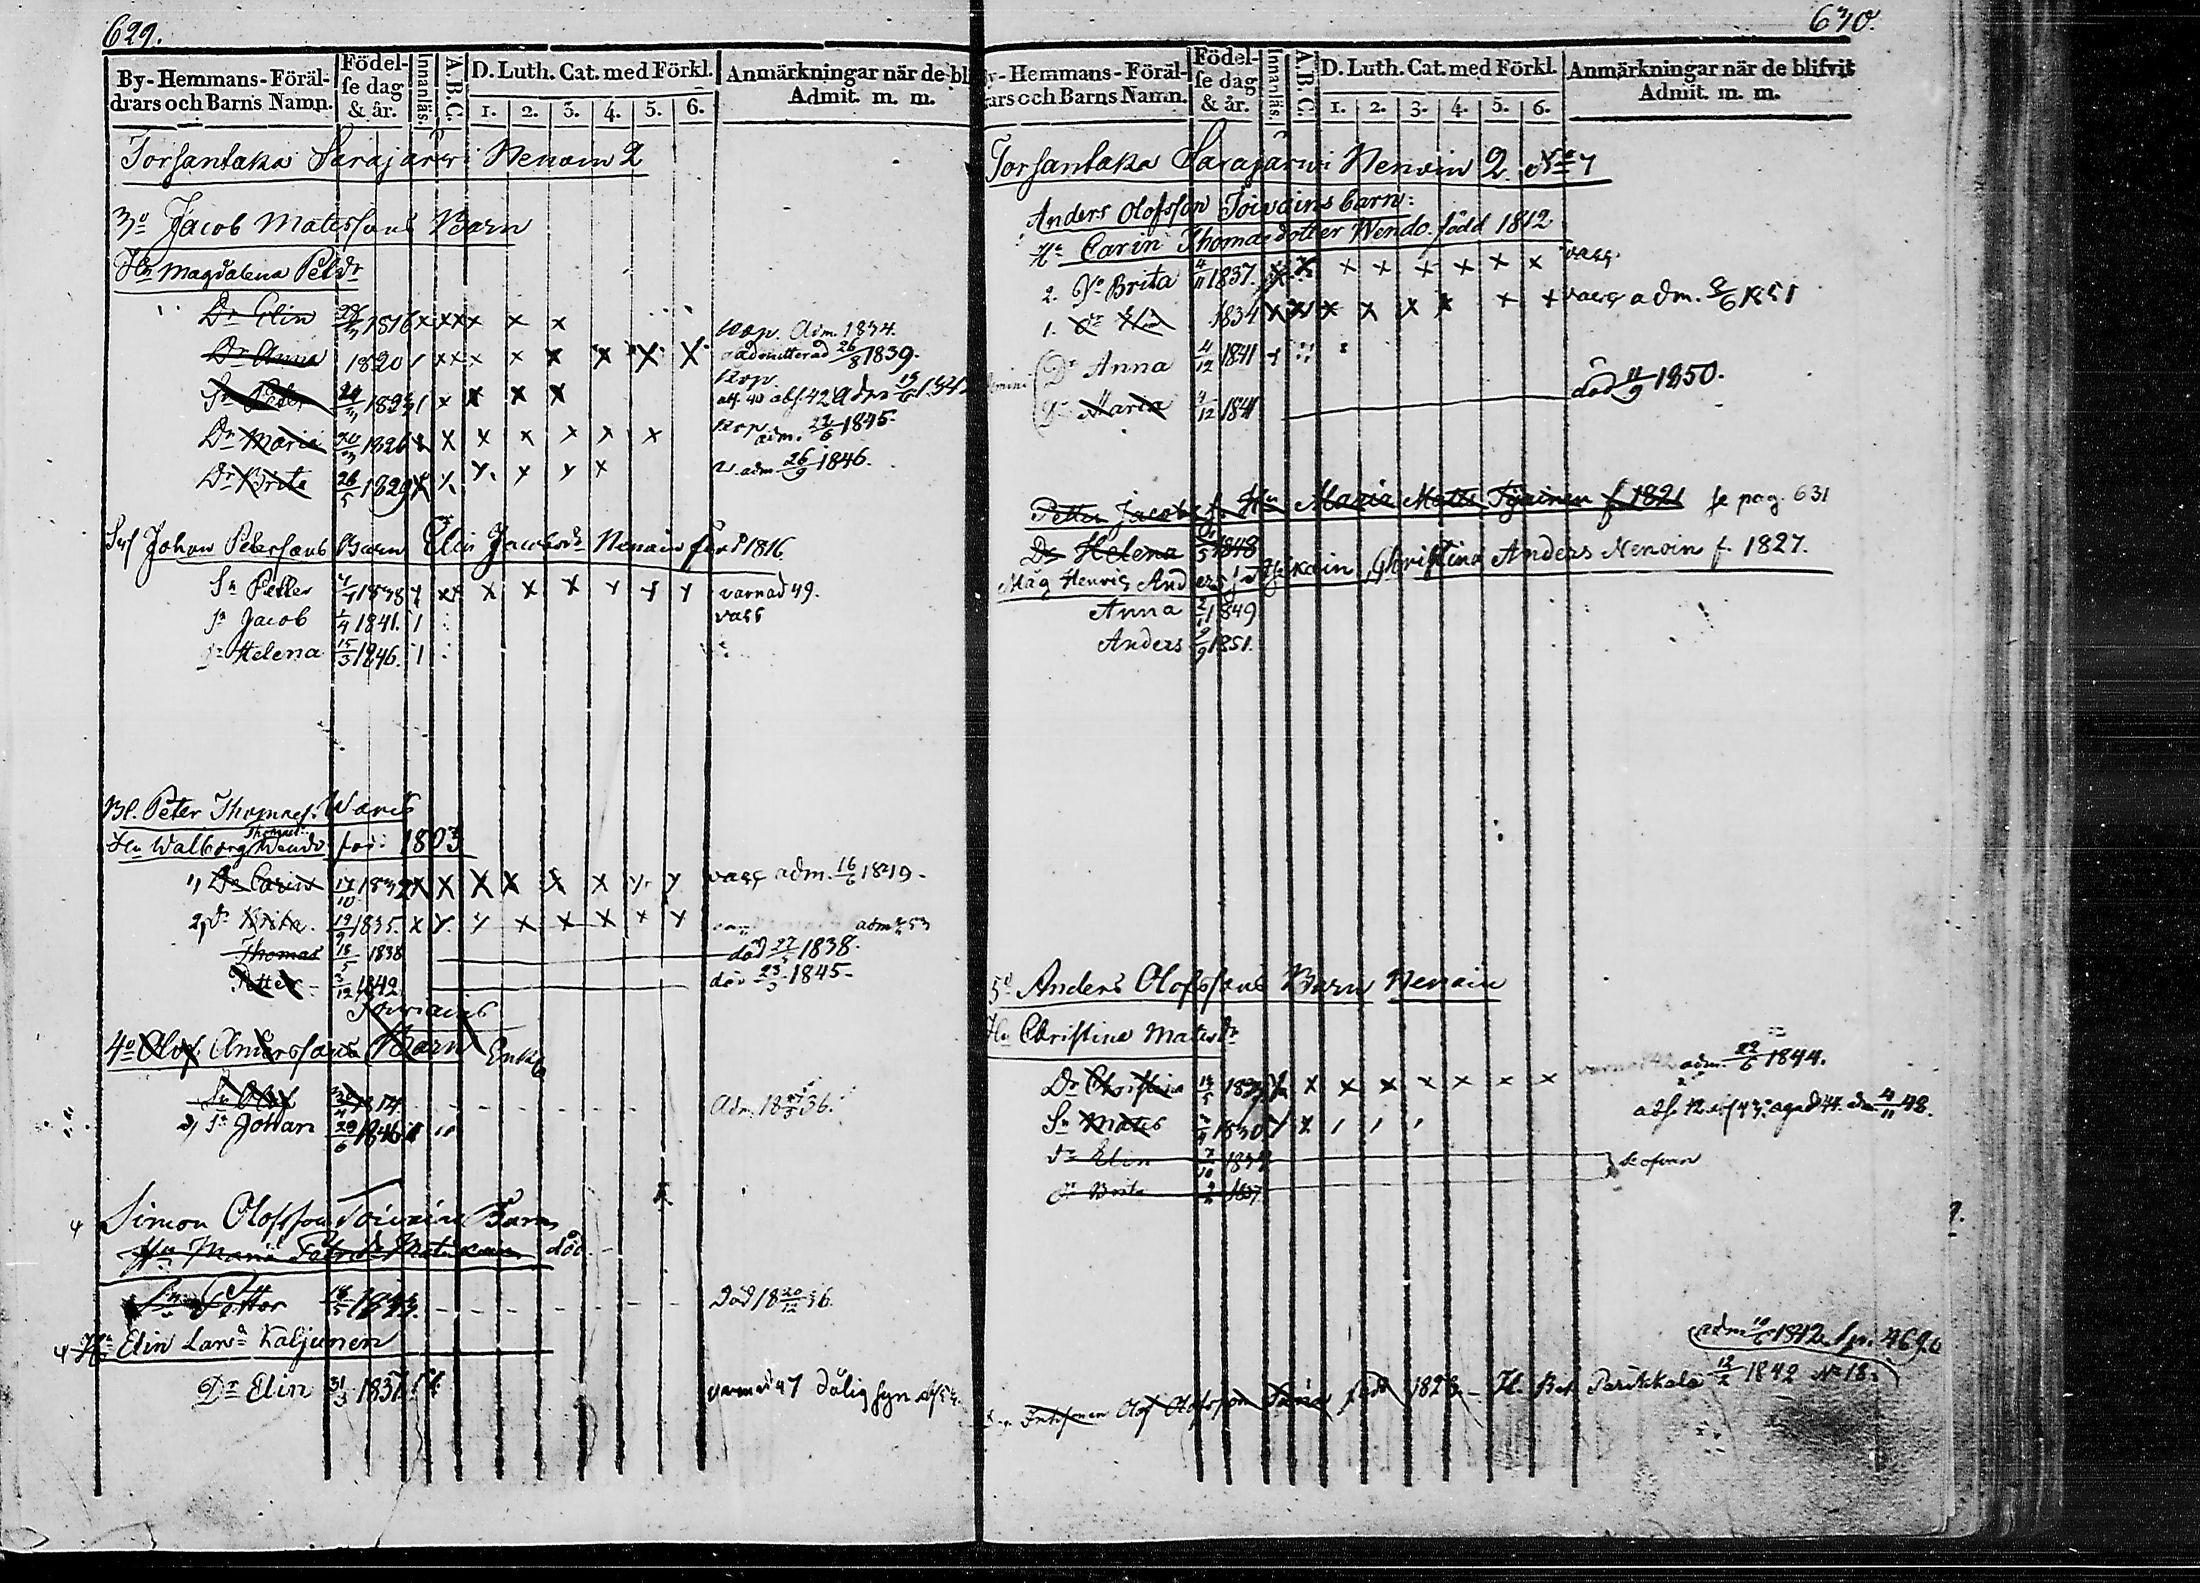 629.
By-Hemmans-Föräl-
drars och Barns Namn.
Födel-
se dag
& år.
Innanläs.
A.B.C.
D. Luth. Cat. med Förkl.
1. 2. 3. 4. 5. 6.
Anmärkningar när de bli
Admit. m. m.
Torsantaka Sarajarwi Nenoin 2
3o Jacob Matssons Barn
Hu Magdalena Petdr
Dr Elin 1816 x x x x x x kop. Adm. 1834.
Dr Anna 1820 / x x x x x x x x admitterad 26/8 1839.
Sn Peter / x x x x kop.
Dr Maria 20/3 1826 x x x x x x x kop. adm. 22/6 1845.
Dr Brita 26/5 1829 x x x x x x v. adm 26/9 1846.
Johan Peterssons Barn Elin Jacobsdr Nenoin född 1816
Sn Petter 1838 x x x x x x x x varnad 49.
Sn Jacob 1/4 1841. / vass
Dr Helena 15/3 1846. /
Bl. Peter Thomass. Wanes
Hu Walborg Thomasd. Wendo föd: 1803
1, Dr Carin 17/10 1832 x x x x x x x x vass adm. 16/6 1849.
2, dr Brita. 19/9 1835. x x x x x x x x adm 53
Thomas 18/5 1838 död 27/5 1838.
Petter 3/12 1842 död 23/3 1845.
Toivains
4o Olof Anderssons Barn Enka
Sn Olof 1814. Adm. 18 36.
2, Sn Johan 29/6 1846
4 Simon Olofsson Toivain Barn
Hu Maria död
Sn Petter Död 18 20/12 36.
4 Hu Elin Larsd Kaljunen
Dr Elin 31/3 1837. varnad 47 dålig syn
630.
By-Hemmans-Föräl-
drars och Barns Namn.
Födel-
se dag
& år.
Innanläs.
A.B.C.
D. Luth. Cat. med Förkl.
1. 2. 3. 4. 5. 6.
Anmärkningar när de blifvit
Admit. m. m.
Torsantaka Sarajarwi Nenoin 2. No 7
Anders Olofsson Toivains barn:
Hu Carin Thomasdotter Wendo. född 1812
2. Dr Brita 4/11 1837. x x x x x x x x vass.
1. Dr Elin 1834 x x x x x x x x vass adm. 8/6 1851
Dr Anna 4/12 1841
Dr Maria 4/12 1841 död 11/9 1850.
Petter Jacobs f. Hu Maria Matts Tyrinen f 1821 se pag. 631
Dr Helena 1848
Mag Henric Anders: Christina Anders Nenoin f. 1827.
Anna 1849
Anders 1851.
5o Anders Olofssons Barn Nenoin
Hu Christina Matsdr
Dr Christina x x x x x x x adm. 22/6 1844.
Sn Mats 1830 4/11 48.
dr Elin
dr Brita
adm 1842
Olof Olofsson född 1823. H. Bet. Parikkala 12/2 1842 No 18.